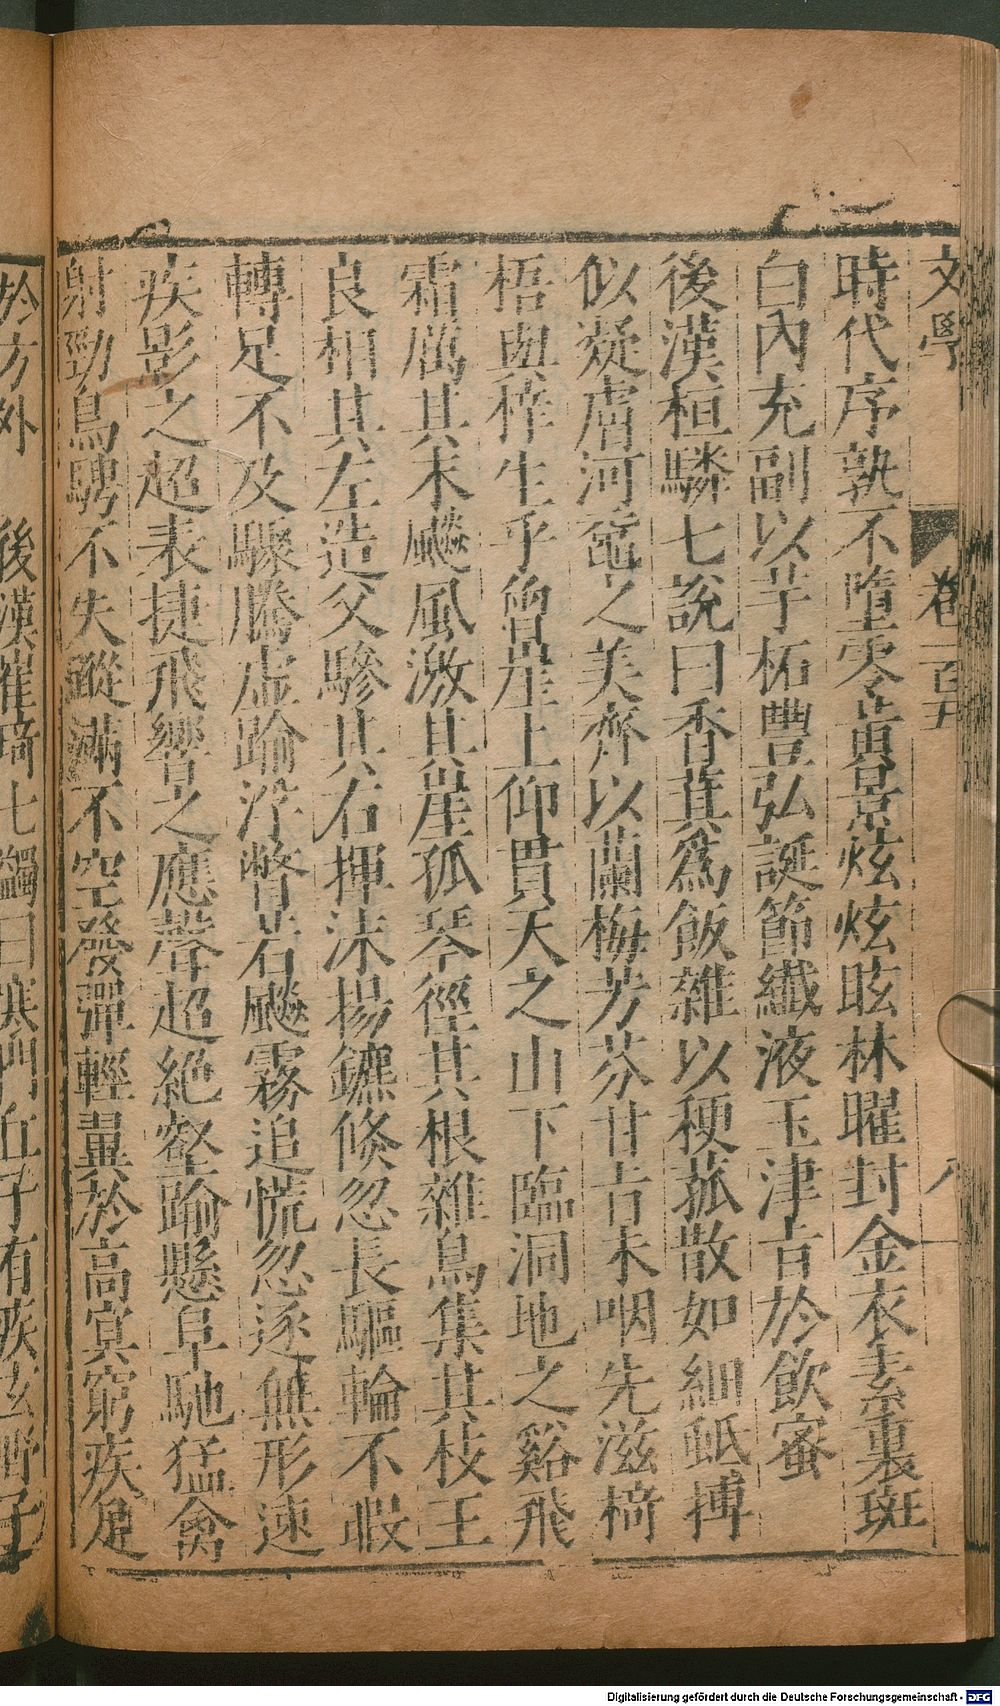 文學 卷一百五 八
時代序孰不墮零黃景炫炫眩林曜封金衣素裏斑
白內充副以芋柘豊弘誕節纖液玉津旨於飲蜜
後漢桓驎七說曰香萁爲飯雜以稉菰散如細蚳摶
似凝膚河黿之美齊以蘭梅芳芬甘旨未咽先滋椅
梧 生乎曾崖上仰貫天之山下臨洞地之谿飛
霜厲其末飈風激其崖孤琴徑其根雜鳥集其枝王
良相其左造父驂其右揮沫揚鑣倏忽長驅輪不暇
轉足不及驟騰虛踰浮瞥若飈霧追慌忽逐無形速
疾影之超表捷飛響之應聲超絶壑踰懸阜馳猛禽
射勁鳥騁不失蹤滿不空發彈輕翼於高冥窮疾足
於方外 後漢崔琦七蠲曰寒門丘子有疾玄野子
Digitalisierung gefördert durch die Deutsche Forschungsgemeinschaft - DFG